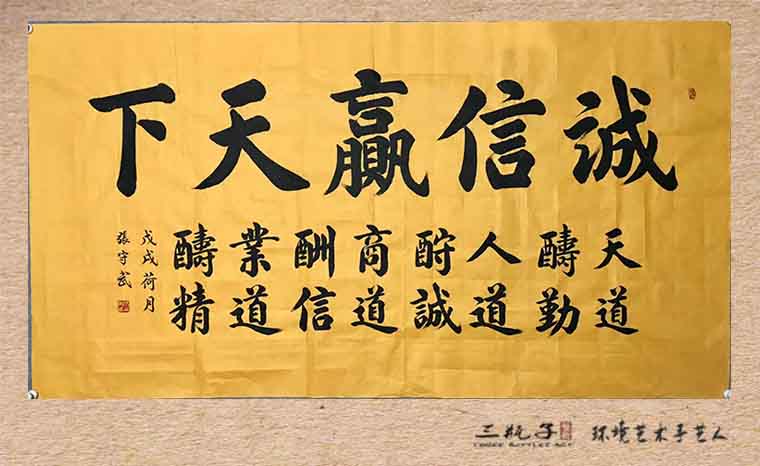 誠信贏天下
天道
醻勤
人道
酧誠
商道
酬信
業道
醻精
戊戌荷月
張守武
三瓶子
THREE BOTTLES ART
环境艺术手艺人